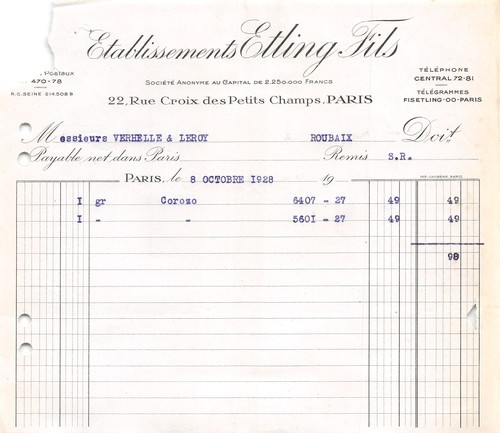 Etablissements Etling Fils
Postaux
470-78
R.C. SEINE 214.508 B
SOCIÉTÉ ANONYME AU CAPITAL DE 2.250.000 FRANCS
22, RUE CROIX DES PETITS CHAMPS, PARIS
TÉLÉPHONE
CENTRAL 72-81
TÉLÉGRAMMES
FISETLING-00-PARIS
Messieurs VERHELLE & LEROY ROUBAIX Doit
Payable net dans Paris Remis S.R.
PARIS, le 8 OCTOBRE 1928 19
I gr Corozo 6407 - 27 49 49
I - - 5601 - 27 49 49
98